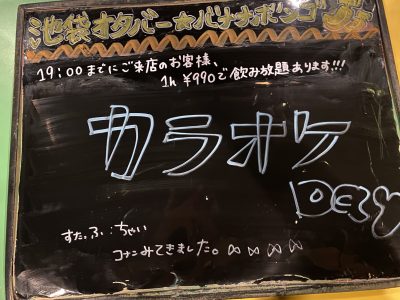 池袋オタバー☆バナナボンゴ
19:00までにご来店のお客様、
1h ¥990で飲み放題あります!!!
カラオケ
すたっふ:ちゃい
コナンみてきました。